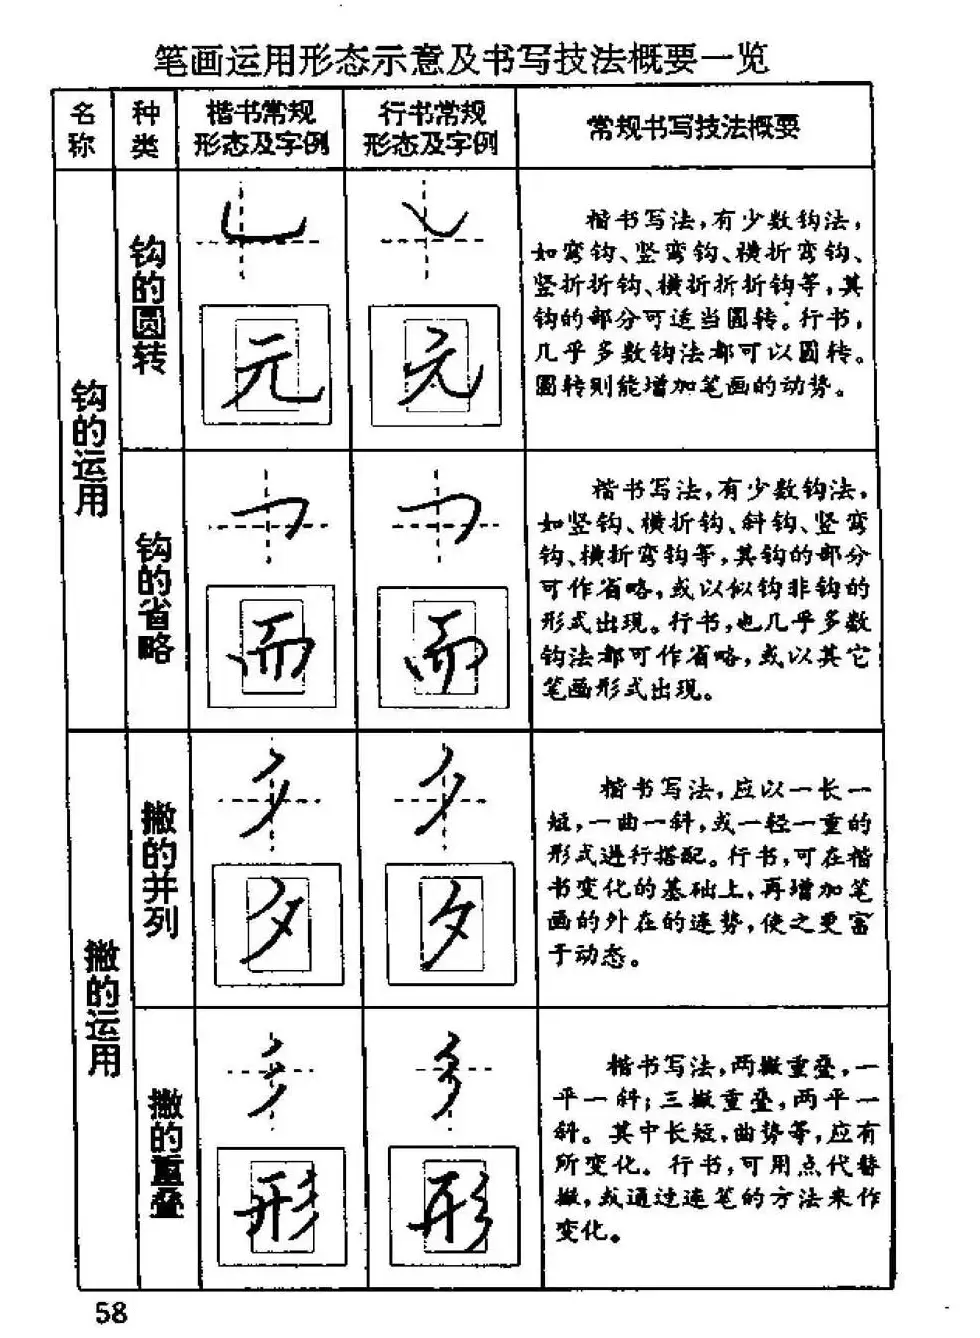 笔画运用形态示意及书写技法概要一览
名称
种类
楷书常规
形态及字例
行书常规
形态及字例
常规书写技法概要
钩的运用
钩的圆转
元
元
楷书写法，有少数钩法，
如弯钩、竖弯钩、横折弯钩、
竖折折钩、横折折折钩等，其
钩的部分可适当圆转。行书，
几乎多数钩法都可以圆转。
圆转则能增加笔画的动势。
钩的省略
而
而
楷书写法，有少数钩法，
如竖钩、横折钩、斜钩、竖弯
钩、横折弯钩等，其钩的部分
可作省略，或以似钩非钩的
形式出现。行书，也几乎多数
钩法都可作省略，或以其它
笔画形式出现。
撇的运用
撇的并列
夕
夕
楷书写法，应以一长一
短，一曲一斜，或一轻一重的
形式进行搭配。行书，可在楷
书变化的基础上，再增加笔
画的外在的连势，使之更富
于动态。
撇的重叠
形
形
楷书写法，两撇重叠，一
平一斜；三撇重叠，两平一
斜。其中长短，曲势等，应有
所变化。行书，可用点代替
撇，或通过连笔的方法来作
变化。
58